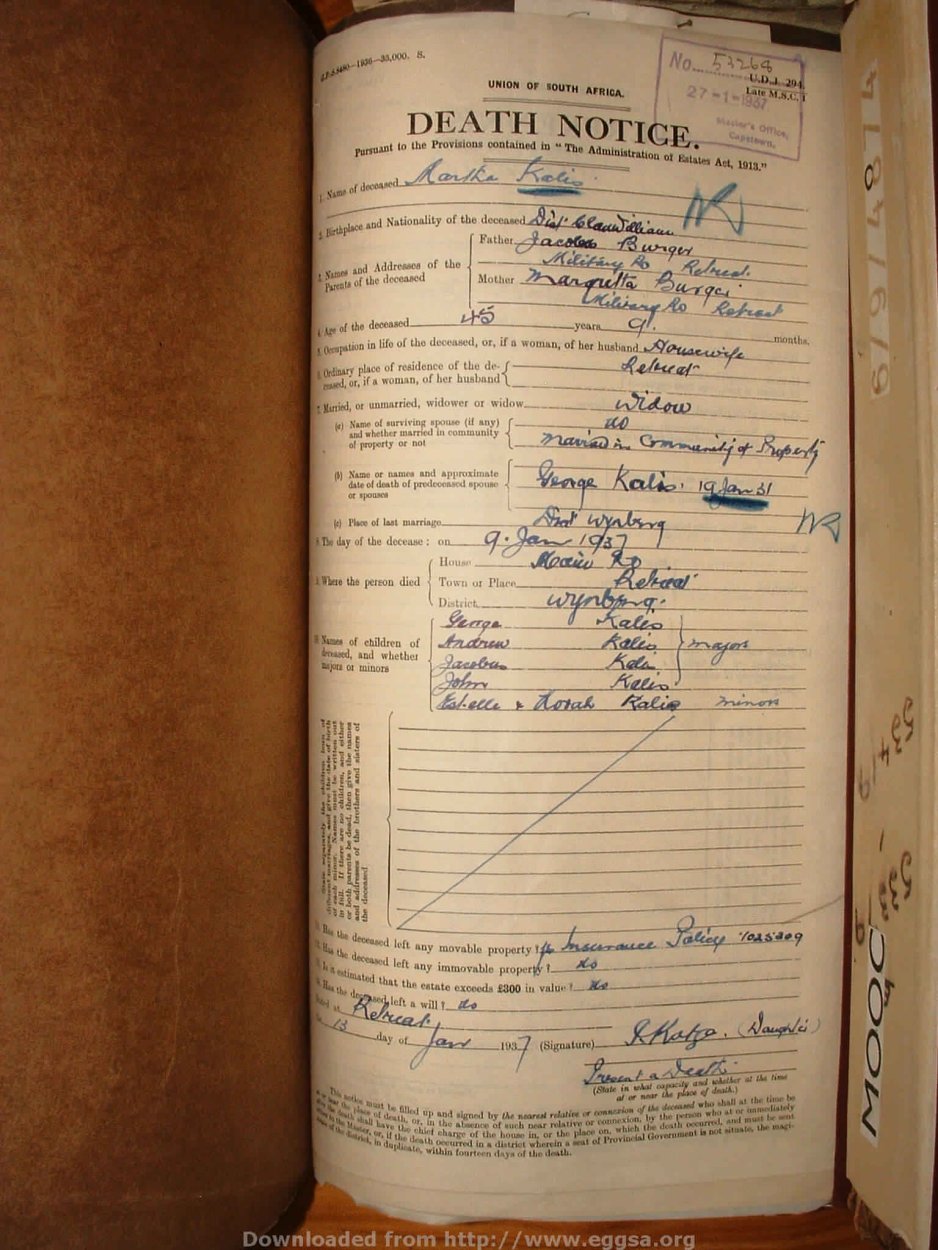 U.D.J. 5490—1936—35,000. S.
No. 53268
U.D.J. 294.
Late M.S.C. 1
27-1-1937
Master's Office,
Capetown.
UNION OF SOUTH AFRICA.
DEATH NOTICE.
Pursuant to the Provisions contained in "The Administration of Estates Act, 1913."
1. Name of deceased Martha Kalis
2. Birthplace and Nationality of the deceased Dist Clanwilliam
3. Names and Addresses of the Parents of the deceased
Father Jacobus Burger
Military Ro Retreat.
Mother Margretta Burger
Military Ro Retreat
4. Age of the deceased 45 years 9. months.
5. Occupation in life of the deceased, or, if a woman, of her husband Housewife
6. Ordinary place of residence of the deceased, or, if a woman, of her husband Retreat
7. Married, or unmarried, widower or widow Widow
(a) Name of surviving spouse (if any) and whether married in community of property or not
no
Married in Community of Property
(b) Name or names and approximate date of death of predeceased spouse or spouses
George Kalis. 19 Jan 31
(c) Place of last marriage Dist Wynberg
8. The day of the decease: on 9. Jan 1937
9. Where the person died
House Main Ro
Town or Place Retreat
District Wynberg.
10. Names of children of deceased, and whether majors or minors
George Kalis
Andrew Kalis
Jacobus Kalis
John Kalis
majors
Estelle & Norah Kalis minors
State separately the children born of
different marriages, and give the date of birth
of each minor. Names must be written out
in full. If there are no children, and either
or both parents be dead, then give the names
and addresses of the brothers and sisters of
the deceased
11. Has the deceased left any movable property? Insurance Policy 1025209
12. Has the deceased left any immovable property? No
13. Is it estimated that the estate exceeds £300 in value? No
14. Has the deceased left a will? No
Dated at Retreat
the 13 day of Jan 1937 (Signature) (Daughter)
Present at Death
(State in what capacity and whether at the time
at or near the place of death.)
This notice must be filled up and signed by the nearest relative or connexion of the deceased who shall at the time be
at or near the place of death, or, in the absence of such near relative or connexion, by the person who at or immediately
after the death shall have the chief charge of the house in, or the place on, which the death occurred, and must be sent
to the Master, or, if the death occurred in a district wherein a seat of Provincial Government is not situate, the magi-
of the district, in duplicate, within fourteen days of the death.
MOOC
Downloaded from http://www.eggsa.org